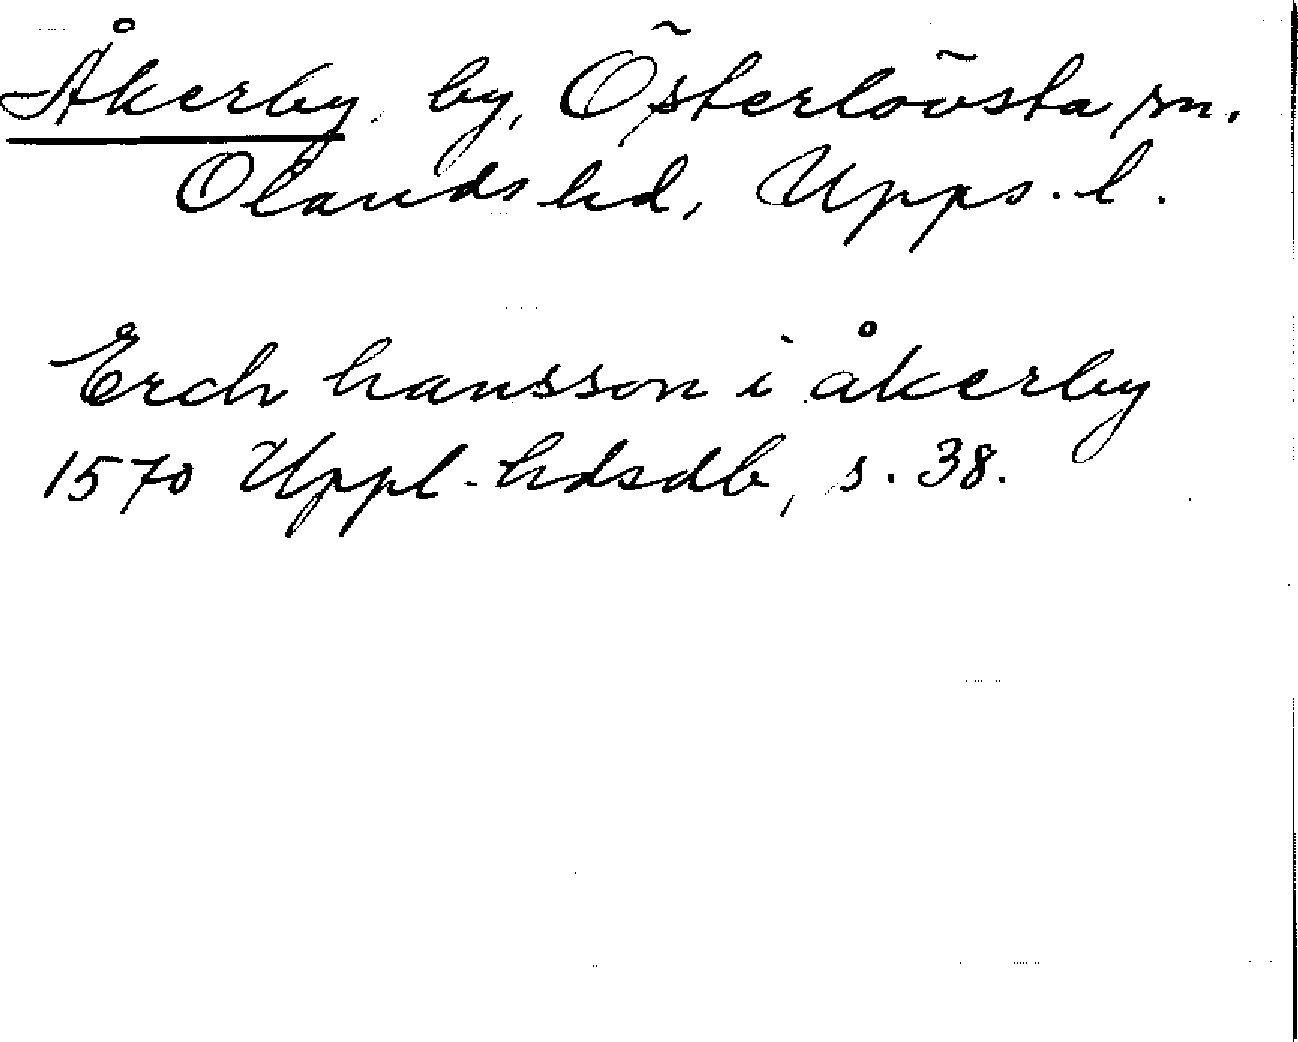 Åkerby, by, Österlövsta sn.
Olands hd, Upps. l.
Erch hansson i åkerby
1570 Uppl. hdsdb, s. 38.